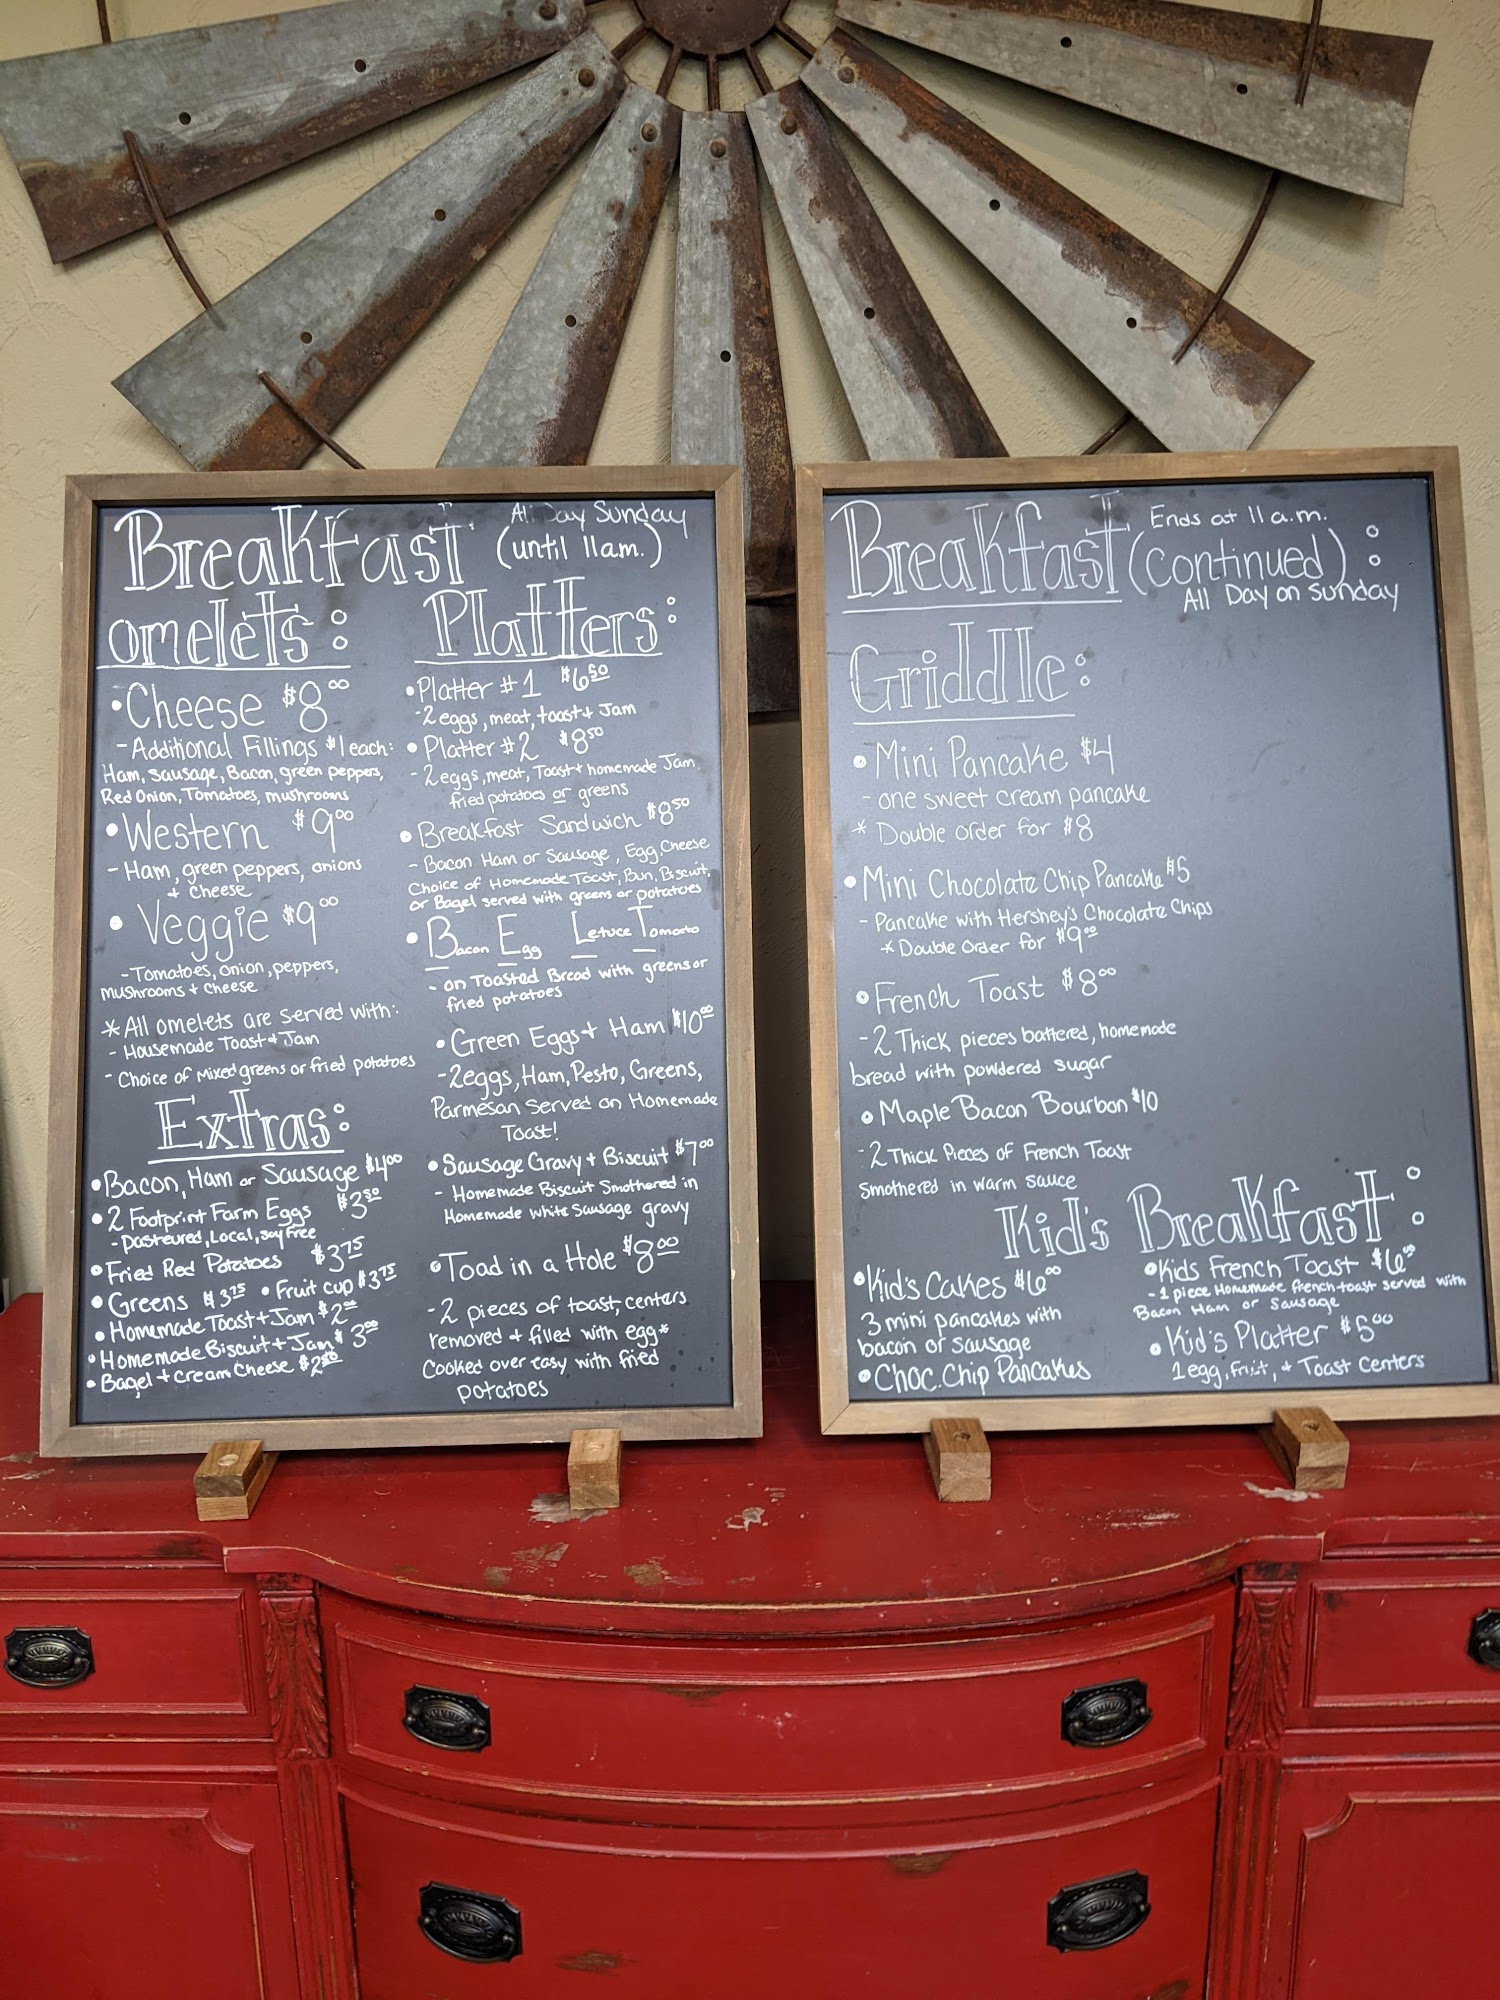 Breakfast All Day Sunday
(until 11am.)
omelets:
• Cheese $8.00
- Additional Fillings $1 each:
Ham, Sausage, Bacon, green peppers,
Red Onion, Tomatoes, mushrooms
• Western $9.00
- Ham, green peppers, onions
+ cheese
• Veggie $9.00
- Tomatoes, onion, peppers,
mushrooms + cheese
* All omelets are served with:
- Housemade Toast + Jam
- Choice of mixed greens or fried potatoes
Extras:
• Bacon, Ham or Sausage $4.00
• 2 Footprint Farm Eggs $3.50
- Pasteured, Local, soy free
• Fried Red Potatoes $3.75
• Greens $3.75 • Fruit cup $3.75
• Homemade Toast + Jam $2.00
• Homemade Biscuit + Jam $3.00
• Bagel + cream Cheese
Platters:
• Platter #1 $6.50
- 2 eggs, meat, toast + Jam
• Platter #2 $8.50
- 2 eggs, meat, Toast + homemade Jam.
fried potatoes or greens
• Breakfast Sandwich $8.50
- Bacon Ham or Sausage, Egg, Cheese
Choice of Homemade Toast, Bun, Biscuit,
or Bagel served with greens or potatoes
• Bacon Egg Letuce Tomato
- on Toasted Bread with greens or
fried potatoes
• Green Eggs + Ham $10.00
- 2 eggs, Ham, Pesto, Greens,
Parmesan served on Homemade
Toast!
• Sausage Gravy + Biscuit $7.00
- Homemade Biscuit Smothered in
Homemade white sausage gravy
• Toad in a Hole $8.00
- 2 pieces of toast, centers
removed + filled with egg*
Cooked over easy with fried
potatoes
Breakfast (continued) :
Ends at 11 a.m.
All Day on Sunday
Griddle:
• Mini Pancake $4
- one sweet cream pancake
* Double order for $8
• Mini Chocolate Chip Pancake $5
- Pancake with Hershey's Chocolate Chips
* Double Order for $9.00
• French Toast $8.00
- 2 Thick pieces battered, homemade
bread with powdered sugar
• Maple Bacon Bourbon $10
- 2 Thick Pieces of French Toast
Smothered in warm sauce
Kid's Breakfast:
• Kid's Cakes $6.00
3 mini pancakes with
bacon or sausage
• Choc. Chip Pancakes
• Kids French Toast $6.00
- 1 piece Homemade french toast served with
Bacon Ham or Sausage
• Kid's Platter $5.00
1 egg, fruit, + Toast Centers